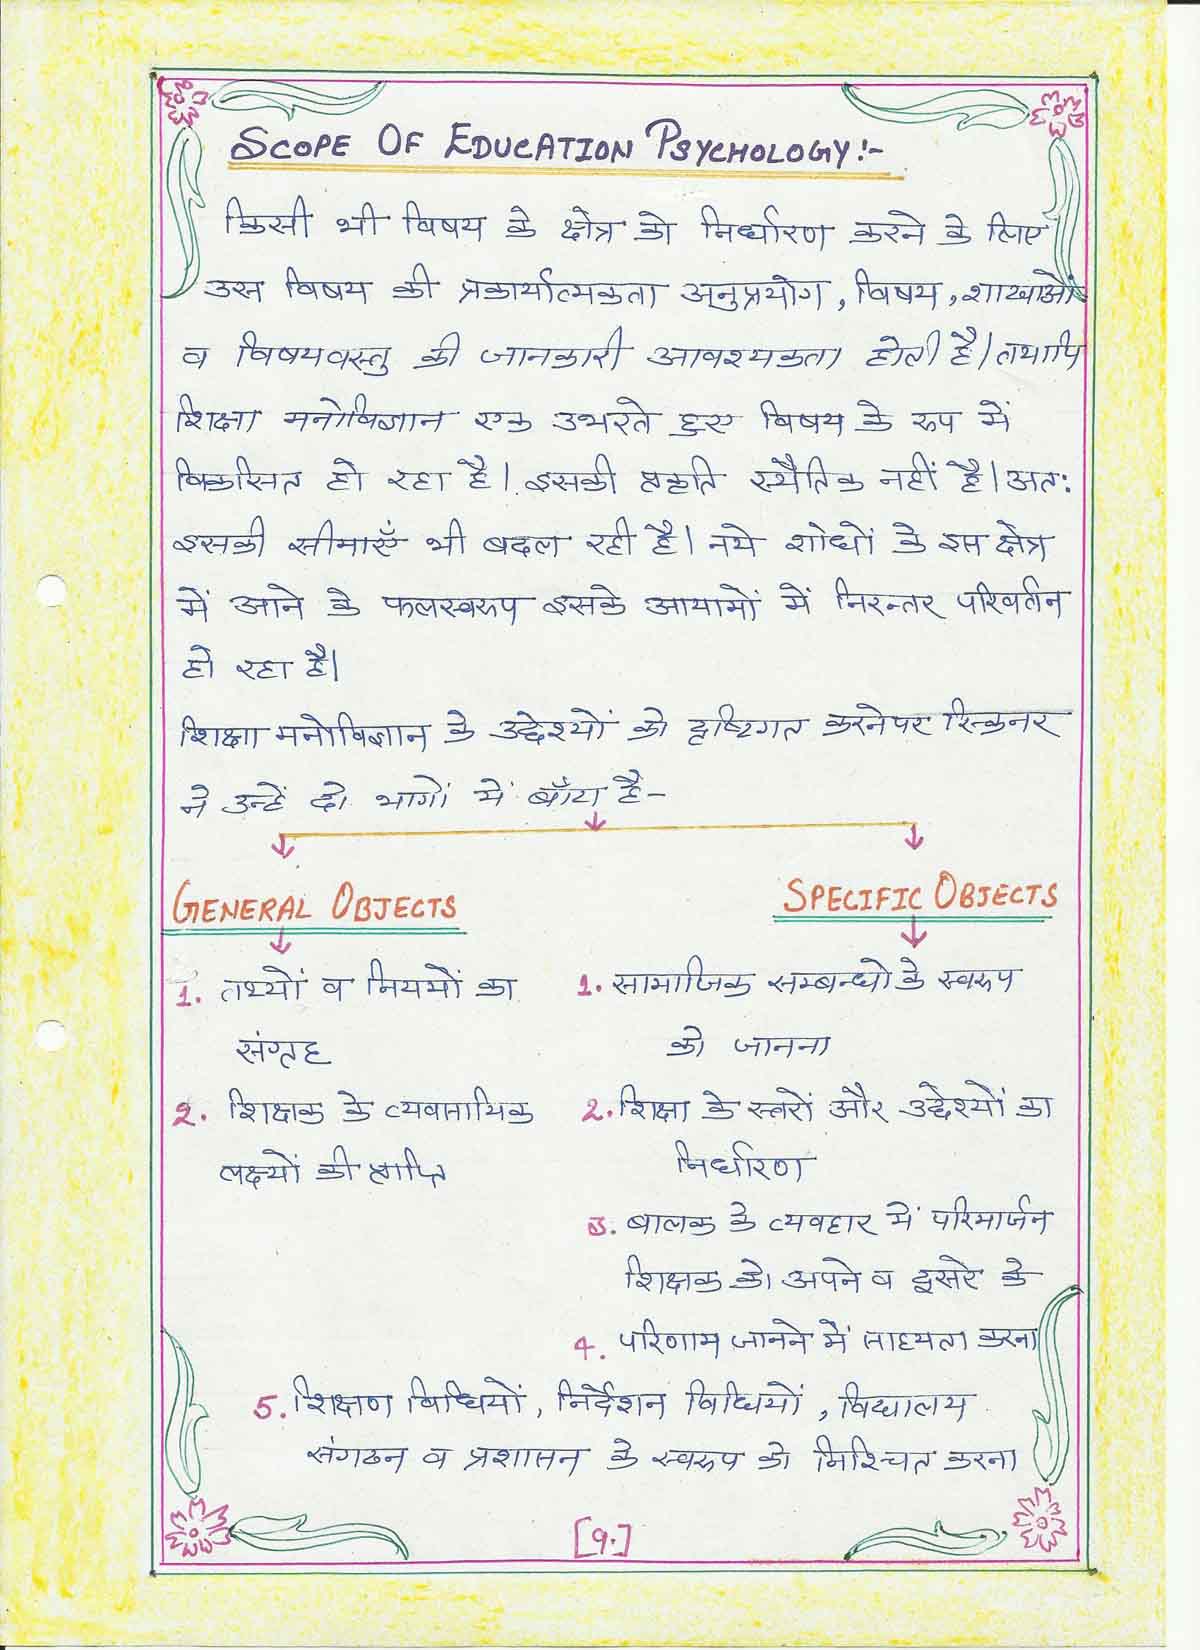 SCOPE OF EDUCATION PSYCHOLOGY:-
किसी भी विषय के क्षेत्र को निर्धारण करने के लिए
उस विषय की प्रकार्यात्यकता अनुप्रयोग, विषय, शाखाओं
व विषयवस्तु की जानकारी आवश्यकता होती है। तथापि
शिक्षा मनोविज्ञान एक उभरते हुए विषय के रुप में
विकसित हो रहा है। इसकी प्रकृति स्थैतिक नहीं है। अतः
इसकी सीमाएँ भी बदल रही है। नये शोधों के इस क्षेत्र
में आने के फलस्वरुप इसके आयामों में निरन्तर परिवर्तन
हो रहा है।
शिक्षा मनोविज्ञान के उद्देश्यों को दृष्टिगत करनेपर स्किनर
ने उन्हें दो भागों में बाँटा है-
GENERAL OBJECTS
1. तथ्यों व नियमों का
संग्रह
2. शिक्षक के व्यवसायिक
लक्ष्यों की प्राप्ति
SPECIFIC OBJECTS
1. सामाजिक सम्बन्धो के स्वरुप
को जानना
2. शिक्षा के स्तरों और उद्देश्यों का
निर्धारण
3. बालक के व्यवहार में परिमार्जन
शिक्षक को अपने व दूसरे के
4. परिणाम जानने में साहयता करना
5. शिक्षण विधियों, निर्देशन विधियों, विद्यालय
संगठन व प्रशासन के स्वरुप को निश्चित करना
[9.]